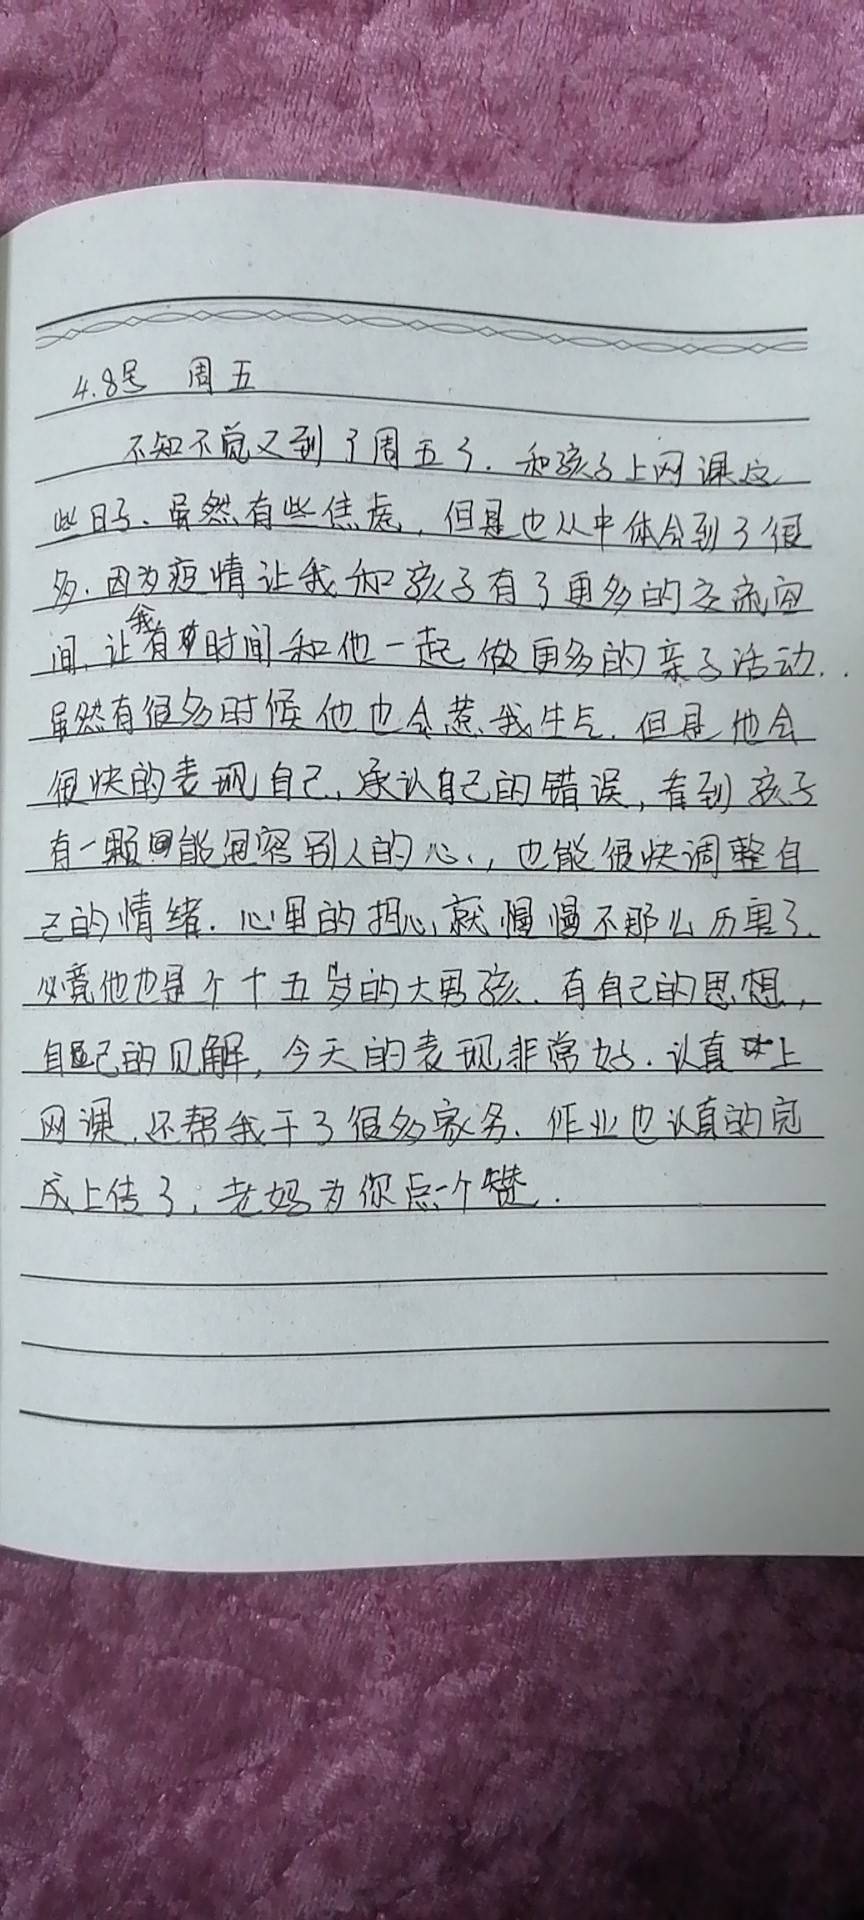 4.8号 周五
不知不觉又到了周五了.和孩子上网课这
些日子、虽然有些焦虑,但是也从中体会到了很
多.因为疫情让我和孩子有了更多的交流空
间,让我有时间和他一起做更多的亲子活动.
虽然有很多时候他也会惹我生气.但是他会
很快的表现自己,承认自己的错误,看到孩子
有一颗能宽容别人的心,也能很快调整自
己的情绪.心里的担心就慢慢不那么历害了.
必竟他也是个十五岁的大男孩.有自己的思想,
自己的见解,今天的表现非常好.认真上
网课,还帮我干了很多家务、作业也认真的完
成上传了,老妈为你点个赞.